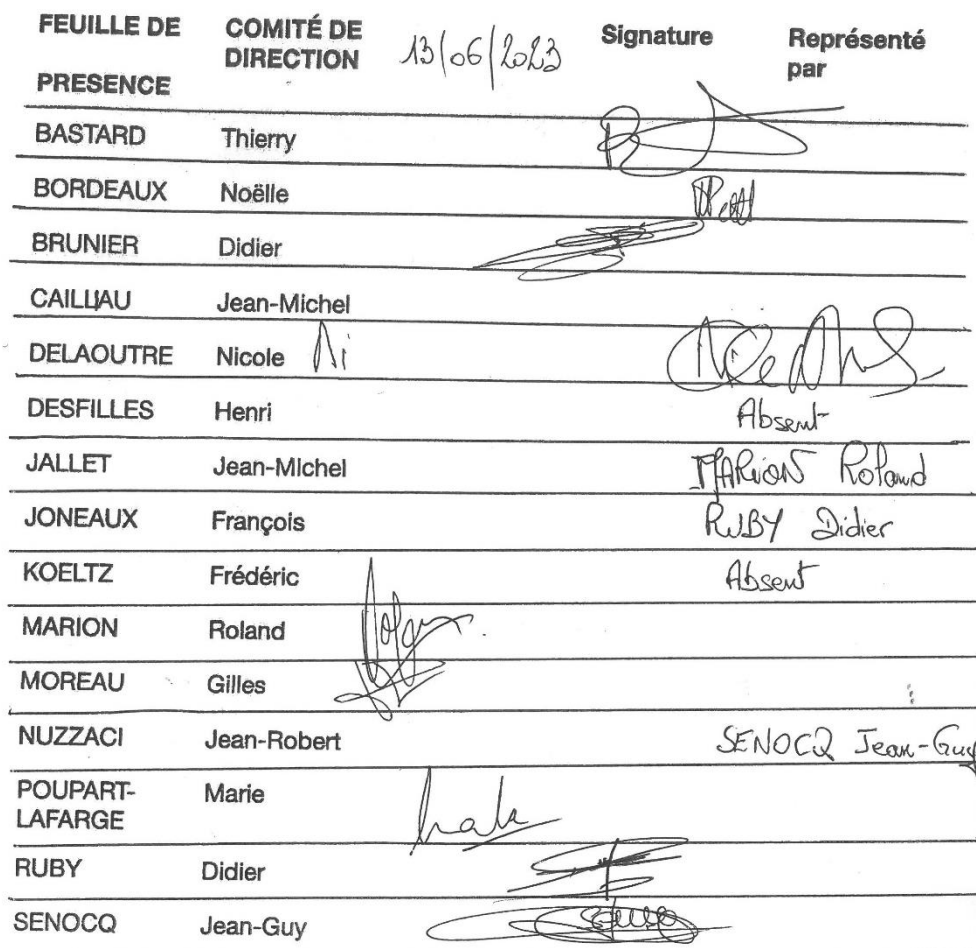 FEUILLE DE PRESENCE COMITÉ DE DIRECTION 13/06/2023 Signature Représenté par
BASTARD Thierry
BORDEAUX Noëlle
BRUNIER Didier
CAILLIAU Jean-Michel
DELAOUTRE Nicole
DESFILLES Henri Absent
JALLET Jean-Michel MARION Roland
JONEAUX François RUBY Didier
KOELTZ Frédéric Absent
MARION Roland
MOREAU Gilles
NUZZACI Jean-Robert SENOCQ Jean-Guy
POUPART-LAFARGE Marie
RUBY Didier
SENOCQ Jean-Guy